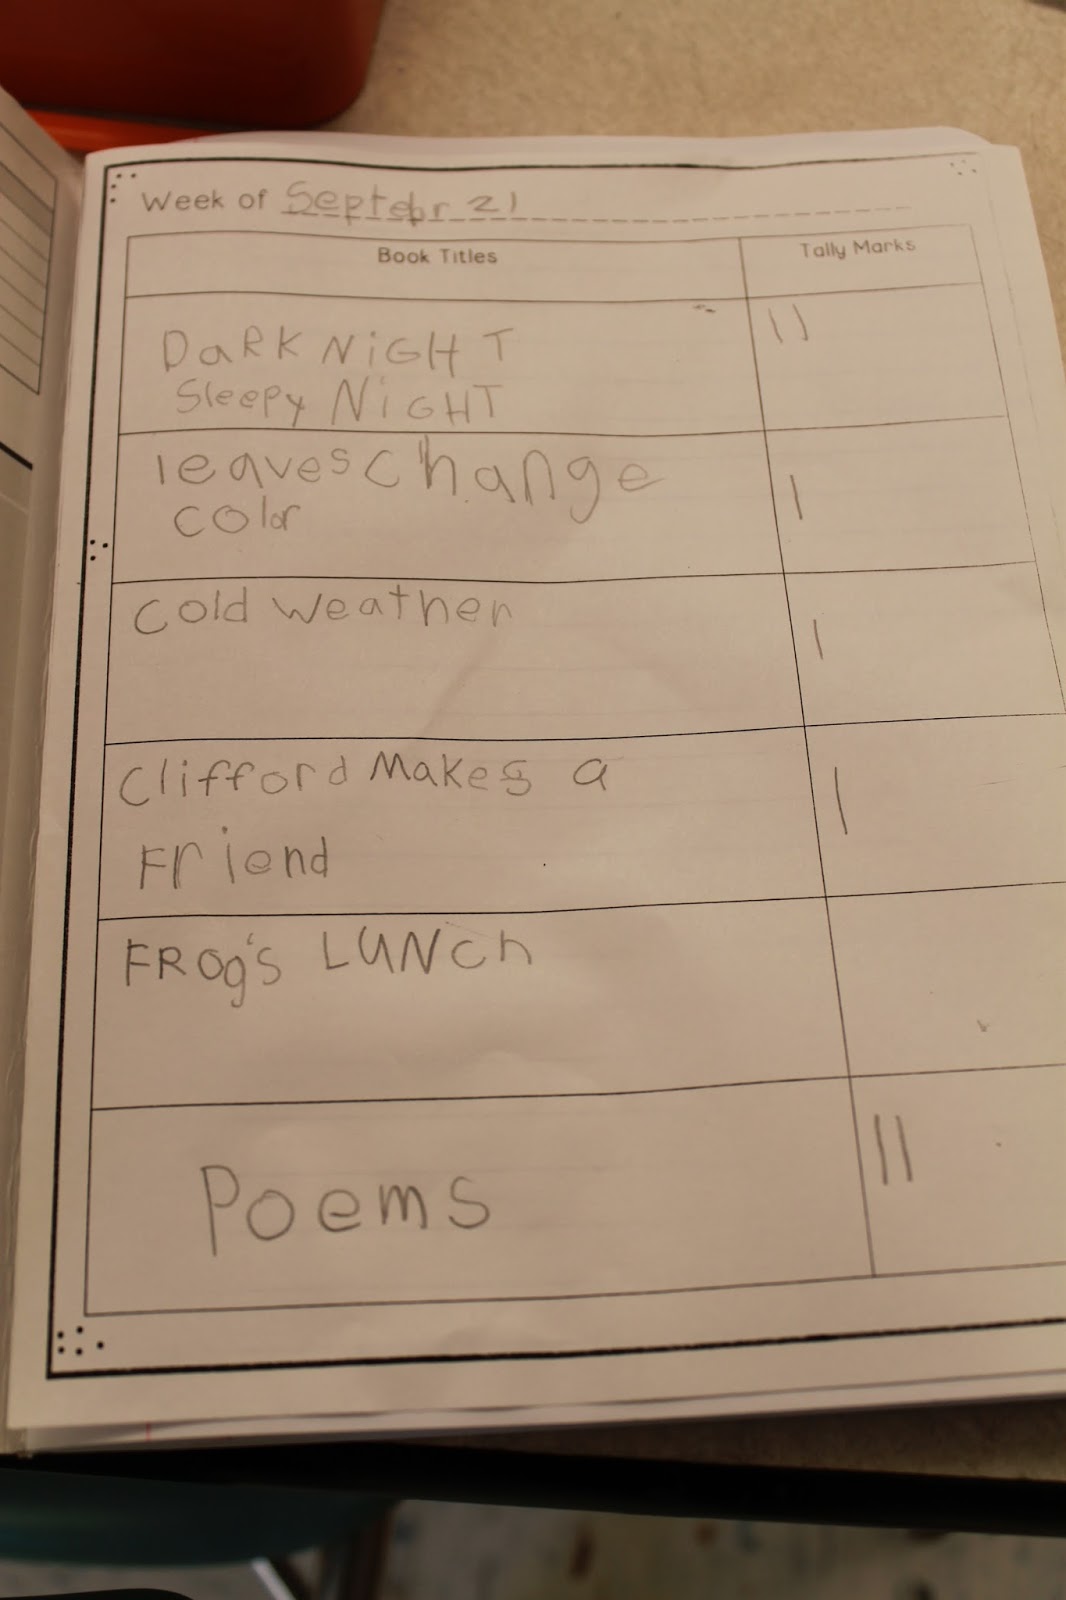 Week of Septebr 21
Book Titles Tally Marks
DaRK NiGHT ||
Sleepy NiGHT
leaves change |
color
cold weather |
Clifford Makes a |
Friend
FROg's LUNch
Poems ||